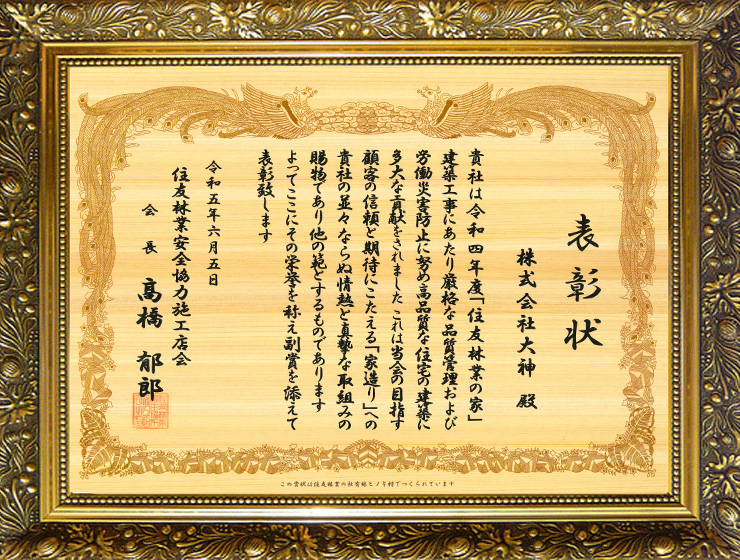 表彰状
株式会社大神 殿
貴社は令和四年度「住友林業の家」
建築工事にあたり厳格な品質管理および
労働災害防止に努め高品質な住宅の建築に
多大な貢献をされました これは当会の目指す
顧客の信頼と期待にこたえる「家造り」への
貴社の並々ならぬ情熱と真摯な取組みの
賜物であり他の範とするものであります
よってここにその栄誉を称え副賞を添えて
表彰致します
令和五年六月五日
住友林業安全協力施工店会
会長 髙橋 郁郎
この賞状は住友林業の社有林ヒノキ材でつくられています